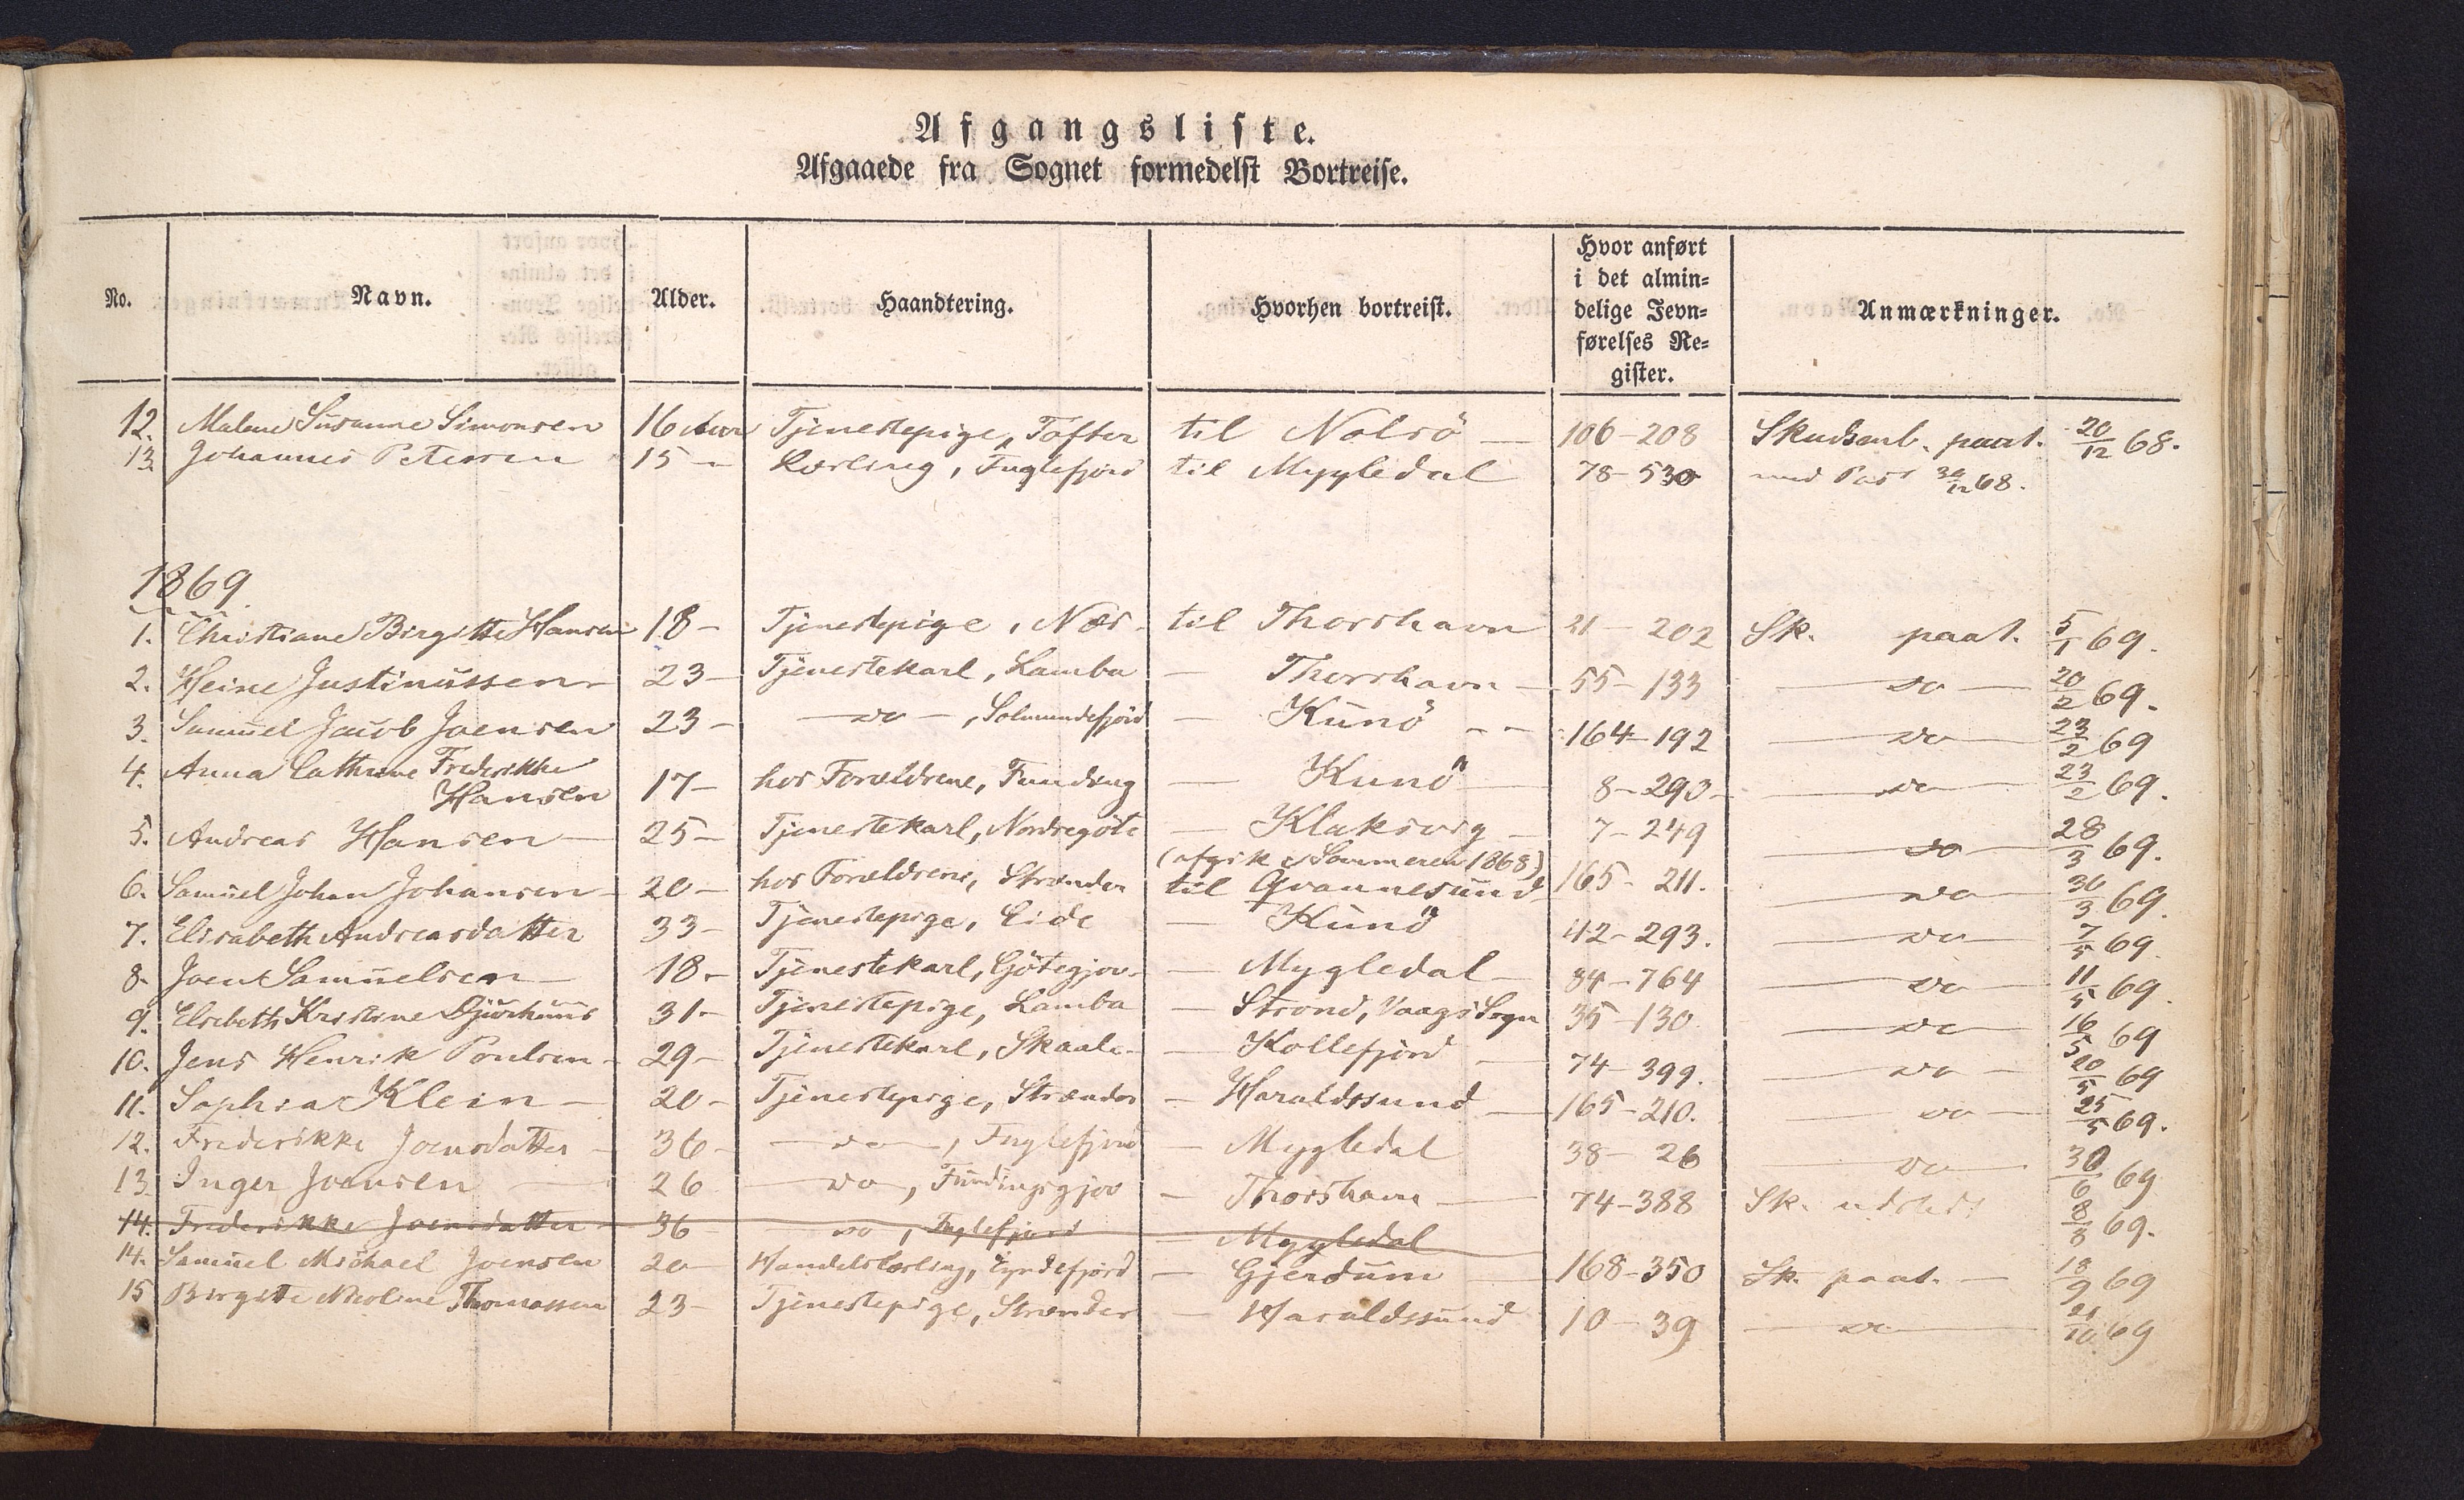 Afgangsliste.
Afgaaede fra Sognet formedelst Bortreise.
No. Navn. Alder. Haandtering. Hvorhen bortreist. Hvor anført i det almindelige Jevnførelses Register. Anmærkninger.
12. Malene Susanne Simonsen 16 Aar Tjenestepige, Tofter til Nolsö — 106-208 Skudsml. paat. 20/12 68.
13. Johannes Petersen 15 — Lærling, Fuglefjord til Mygledal 78-530 med Pas 30/12 68.
1869.
1. Christiane Birgitte Hansen 18 - Tjenestepige, Næs. til Thorshavn 21 - 202 Sk. paat. 5/1 69.
2. Heine Justinussen 23 - Tjenestekarl, Lamba — Thorshavn - 55 - 133 — do — 20/2 69.
3. Samuel Jacob Joensen 23 - — do —, Solmundefjörd — Kunö - - 164-192 — do — 23/2 69
4. Anna Cathrine Frederikke
Hansen 17 - hos Forældrene, Funding — Kunö — 8-290 - — do — 23/2 69.
5. Andreas Hansen — 25 - Tjenestekarl, Nordregöte — Klaksvig — 7-249 — do — 28/3 69.
(afgik i Sommeren 1868)
6. Samuel Johan Johansen - 20 - hos Forældrene, Strænder til Qvannesund 165 - 211. — do — 30/3 69.
7. Elisabeth Andreasdatter 33 - Tjenestepige, Eide — Kunö 42-293. — do — 7/5 69.
8. Joen Samuelsen — 18. - Tjenestekarl, Götegjov. — Mygledal — 84-764 — do — 11/5 69.
9. Elsebeth Kristine Djurhuus 31 - Tjenestepige, Lamba — Strond, Vaags Sogn 35-130. — do — 16/5 69
10. Jens Henrik Poulsen - 29 - Tjenestekarl, Skaale. — Kollefjord — 74-399. — do — 20/5 69
11. Sophia Klein — 20 - Tjenestepige, Strænder — Haraldssund — 165-210. — do — 25/5 69.
12. Frederikke Joensdatter - 36 - — do —, Fuglefjord — Mygledal 38 - 26 — do — 30/6 69
13. Inger Joensen — 26 — do —, Fundingsgjov — Thorshavn — 74-388 Sk. udstedt 8/8 69.
14. Frederikke Joensdatter 36 — do, Fuglefjord — Mygledal
14. Samuel Michael Joensen 20 - Handelslærling, Eyndefjord — Gjerdum — 168-350 Sk. paat. — 18/9 69
15 Birgitte Nicoline Thomassen 23 - Tjenestepige, Strænder — Haraldssund 10 - 39 — do — 21/10 69